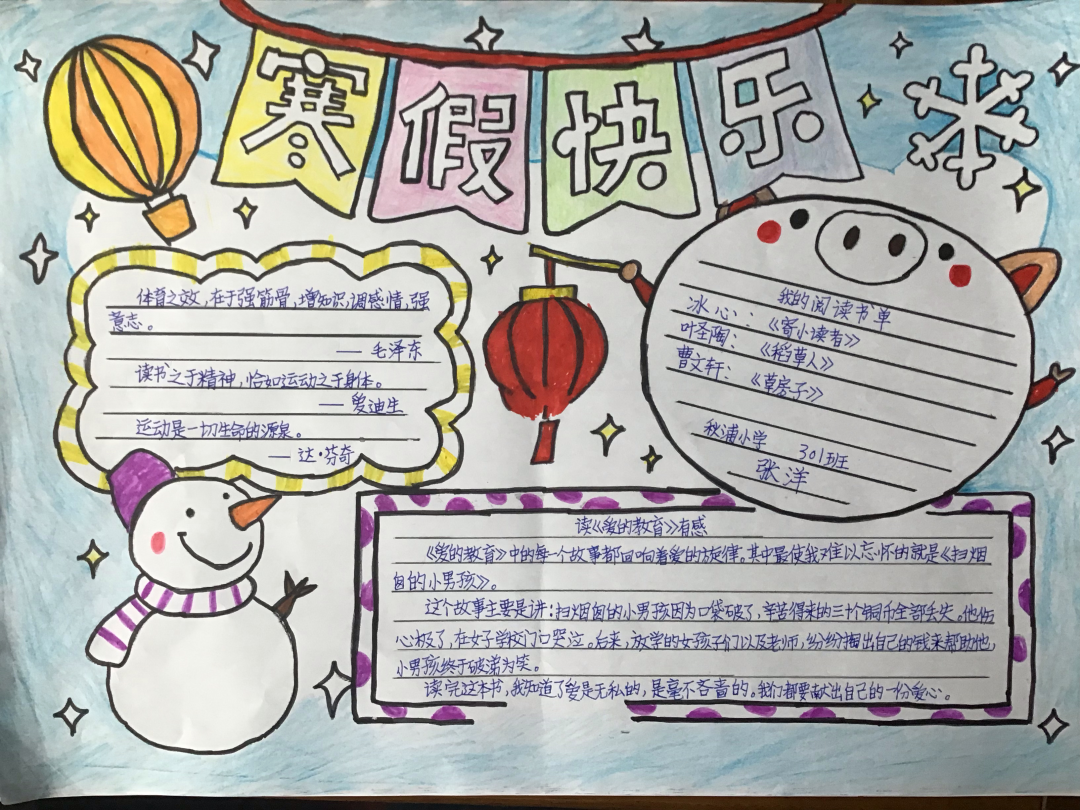 寒假快乐
体育之效，在于强筋骨，增知识，调感情，强
意志。
——毛泽东
读书之于精神，恰如运动之于身体。
——爱迪生
运动是一切生命的源泉。
——达·芬奇
我的阅读书单
冰心：《寄小读者》
叶圣陶：《稻草人》
曹文轩：《草房子》
秋浦小学 301班
张洋
读《爱的教育》有感
《爱的教育》中的每一个故事都回响着爱的旋律。其中最使我难以忘怀的就是《扫烟
囱的小男孩》。
这个故事主要是讲：扫烟囱的小男孩因为口袋破了，辛苦得来的三十个铜币全部丢失。他伤
心极了，在女子学校门口哭泣。后来，放学的女孩子们以及老师，纷纷掏出自己的钱来帮助他，
小男孩终于破涕为笑。
读完这本书，我知道了爱是无私的，是毫不吝啬的。我们都要献出自己的一份爱心。